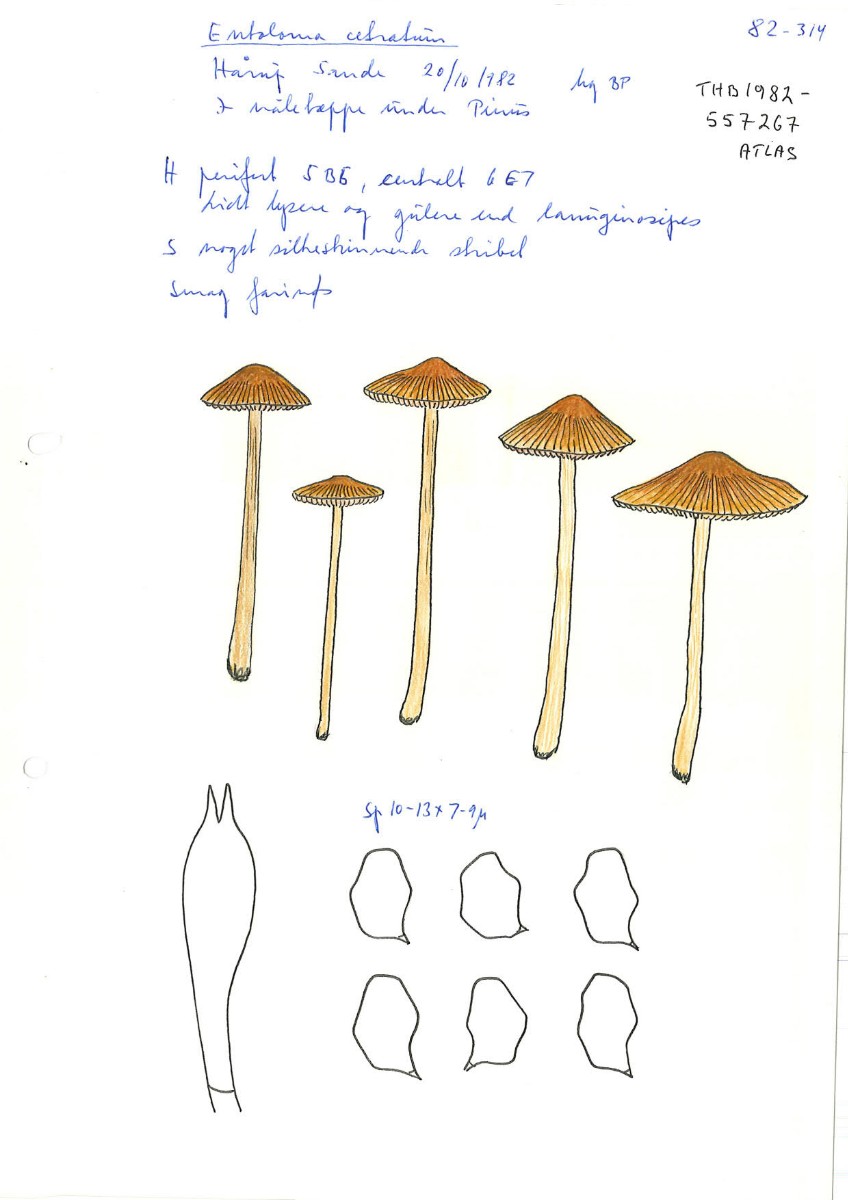 Entoloma cetratum
82-314
Hårup Sande 20/10/1982 leg BP
I nåletæppe under Pinus
THB1982-
557267
ATLAS
H perifert 5B6, centralt 6E7
Lidt lysere og gulere end lanuginosipes
S noget silkeskinnende stribet
Smag farinøs
Sp 10-13 x 7-9µ